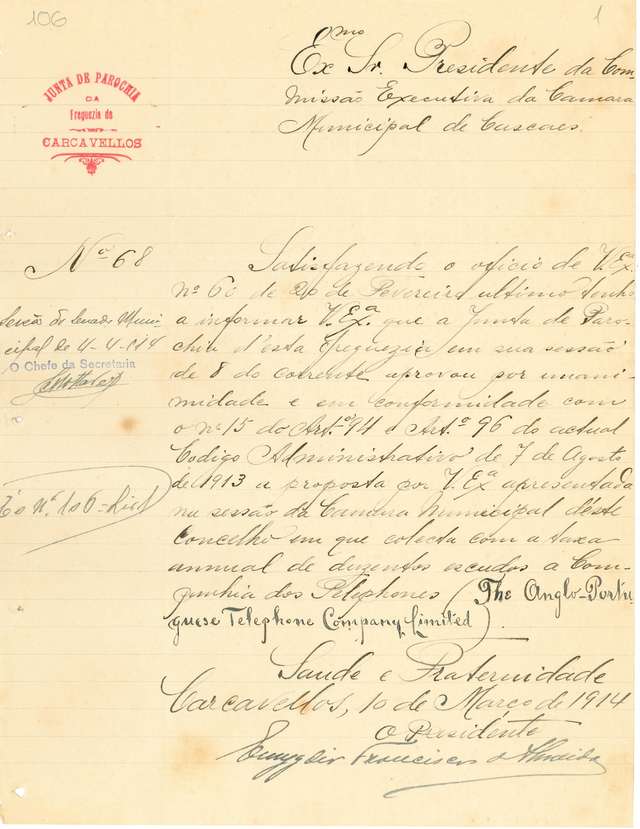 106
1
Exmo Sr. Presidente da Com-
missão Executiva da Camara
Municipal de Cascaes.
JUNTA DE PAROCHIA
DA
Freguezia de
CARCAVELLOS
No 68
Satisfazendo o oficio de V. Exª
nº 6 de de Fevereiro ultimo tenho
a informar V. Exª. que a Junta de Paro-
chia d'esta freguezia em sua sessão
de 8 do corrente aprovou por unani-
midade e em conformidade com
o nº 15 do Artº 94 e Artº 96 do actual
Codigo Administrativo de 7 de Agosto
de 1913 a proposta por V. Exª apresentada
na sessão da Camara Municipal d'éste
concelho em que colecta com a taxa
annual de duzentos escudos a Com-
panhia dos Telephones (The Anglo-Portu-
guese Telephone Company, Limited).
Saude e Fraternidade
Carcavellos, 10 de Março de 1914
O Presidente
Emygdio Francisco d'Almeida
Sessão do Senado Muni-
cipal de 4-4-914
O Chefe da Secretaria
nº 106